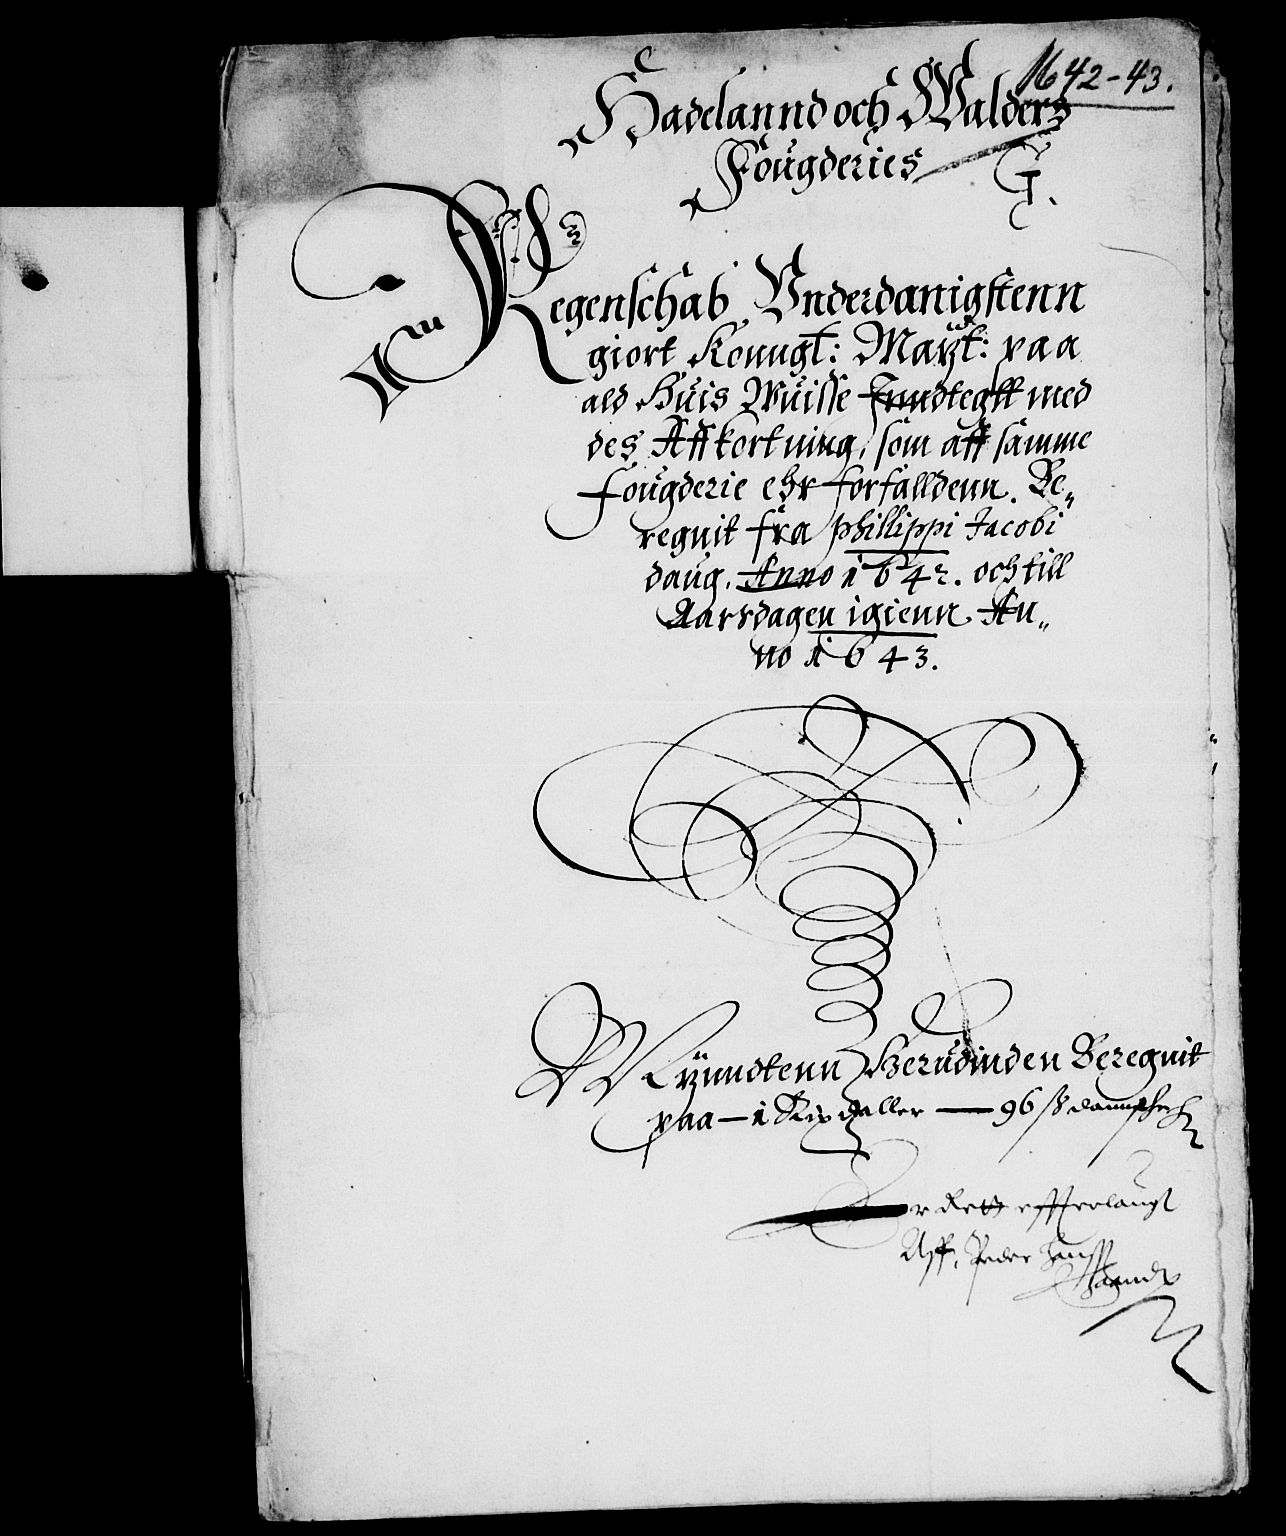 1642-43.
Hadelannd och Walders
Fougderies
Regenschab Vnderdanigstenn
giort Konngl: Maytt: paa
ald Huis Wuisse Inndtegtt med
des Affkortning, som aff samme
Fougderie ehr forfalldenn. Be„
regnit fra phillippi Jacobi
daug. Anno 1642. och till
Aarsdagen igienn An„
no 1643.
Mÿnndtenn Herudinden Beregnit
paa — 1 Rixdaller — 96 ß dannsche
Er dett offuerlangt
Aff, Peder
haandt